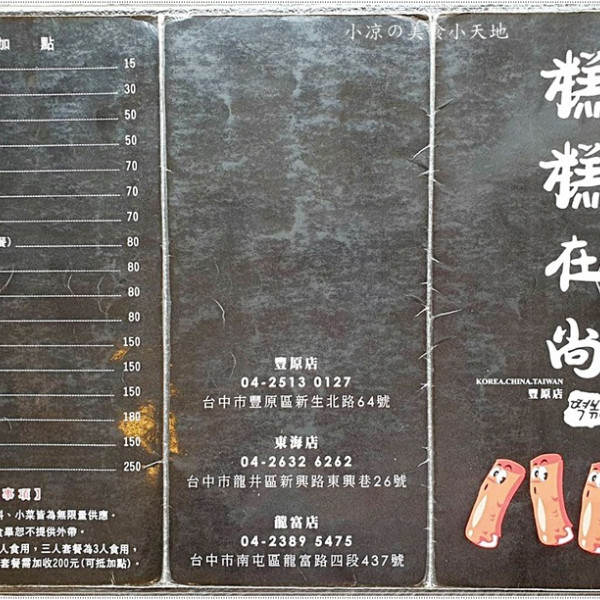 小凉の美食小天地
加 點
15
30
50
50
70
70
70
餐) 80
80
80
80
150
150
150
180
150
250
事項】
料、小菜皆為無限量供應。
食畢恕不提供外帶。
人食用，三人套餐為3人食用，
套餐需加收200元(可抵加點)。
豐原店
04-2513 0127
台中市豐原區新生北路64號
東海店
04-2632 6262
台中市龍井區新興路東興巷26號
龍富店
04-2389 5475
台中市南屯區龍富路四段437號
糕糕在尚
KOREA.CHINA.TAIWAN
豐原店